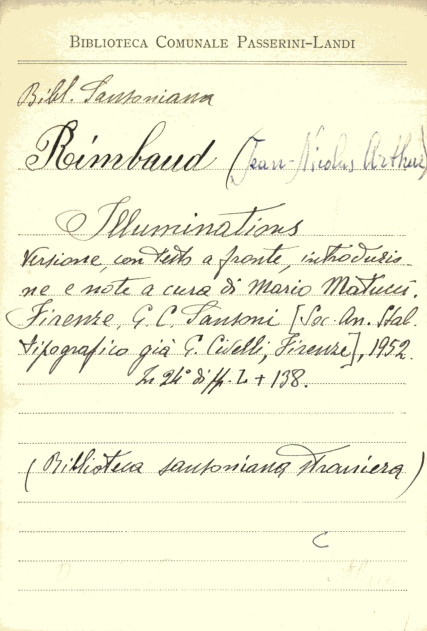 BIBLIOTECA COMUNALE PASSERINI-LANDI
Bibl. Sansoniana
Rimbaud (Jean-Nicolas Arthur)
Illuminations
Versione, con testo a fronte, introduzio-
ne e note a cura di Mario Matucci.
Firenze, G. C. Sansoni [Soc. An. Stab.
tipografico già G. Civelli, Firenze], 1952.
In 24° di pp. L + 138.
(Biblioteca sansoniana straniera)
C